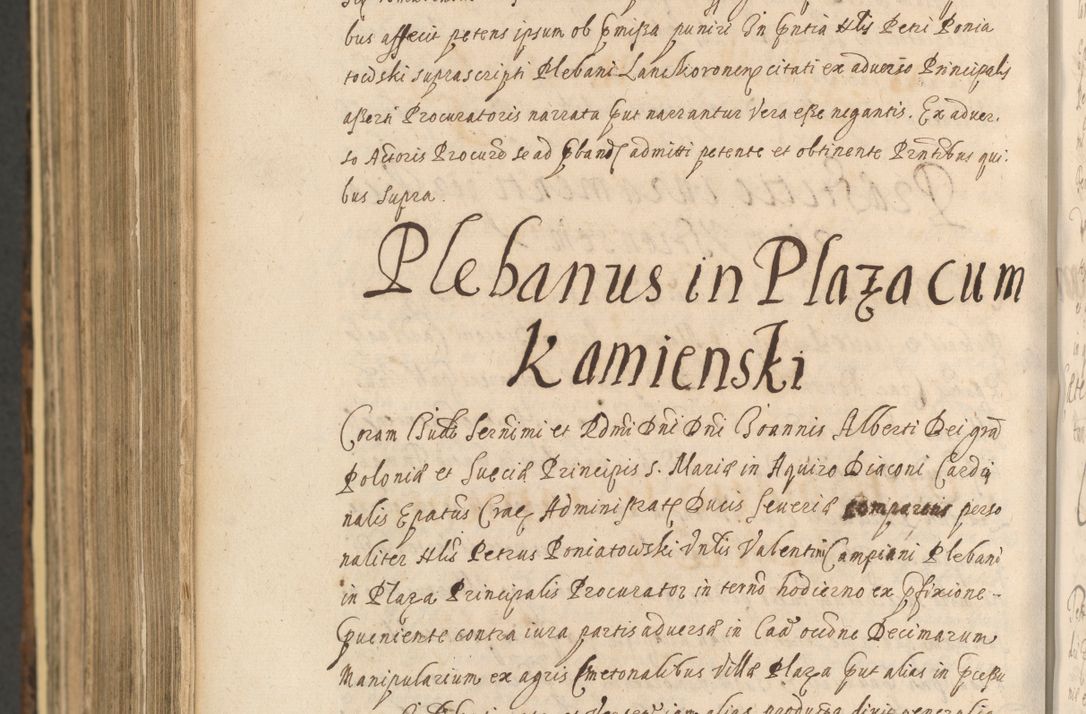 bus affecit petens ipsum ob pmissa puniri In pntia Nlis Petri Ponia
towski suprascripti Plebani Lanckoronen citati ex adverso Principalis
asserti Procuratoris narrata put narrantur vera esse negantis. Ex adver.
so Actoris Procure se ad pband admitti petente et obtinente Prntibus qui.
bus supra.
Plebanus in Plaza cum
Kamienski
Coram Judo Sernimi et Rdmi Dni Dni Joannis Alberti Dei gra
Poloniæ et Sueciæ Principis S. Mariæ in Aquiro Diaconi Cardi
nalis Epatus Crac Administrat Ducis Severiæ comparens perso
naliter Nlis Petrus Poniatowski Vnlis Valentini Campiani Plebani
in Plaza Principalis Procurator in termo hodierno ex pfixione
pueniente contra iura partis adversæ in Caa ocidne Decimarum
Manipularium ex agris Cmetonalibus villæ Plaza put alias in pcessu
iam alias producta dixit generalia